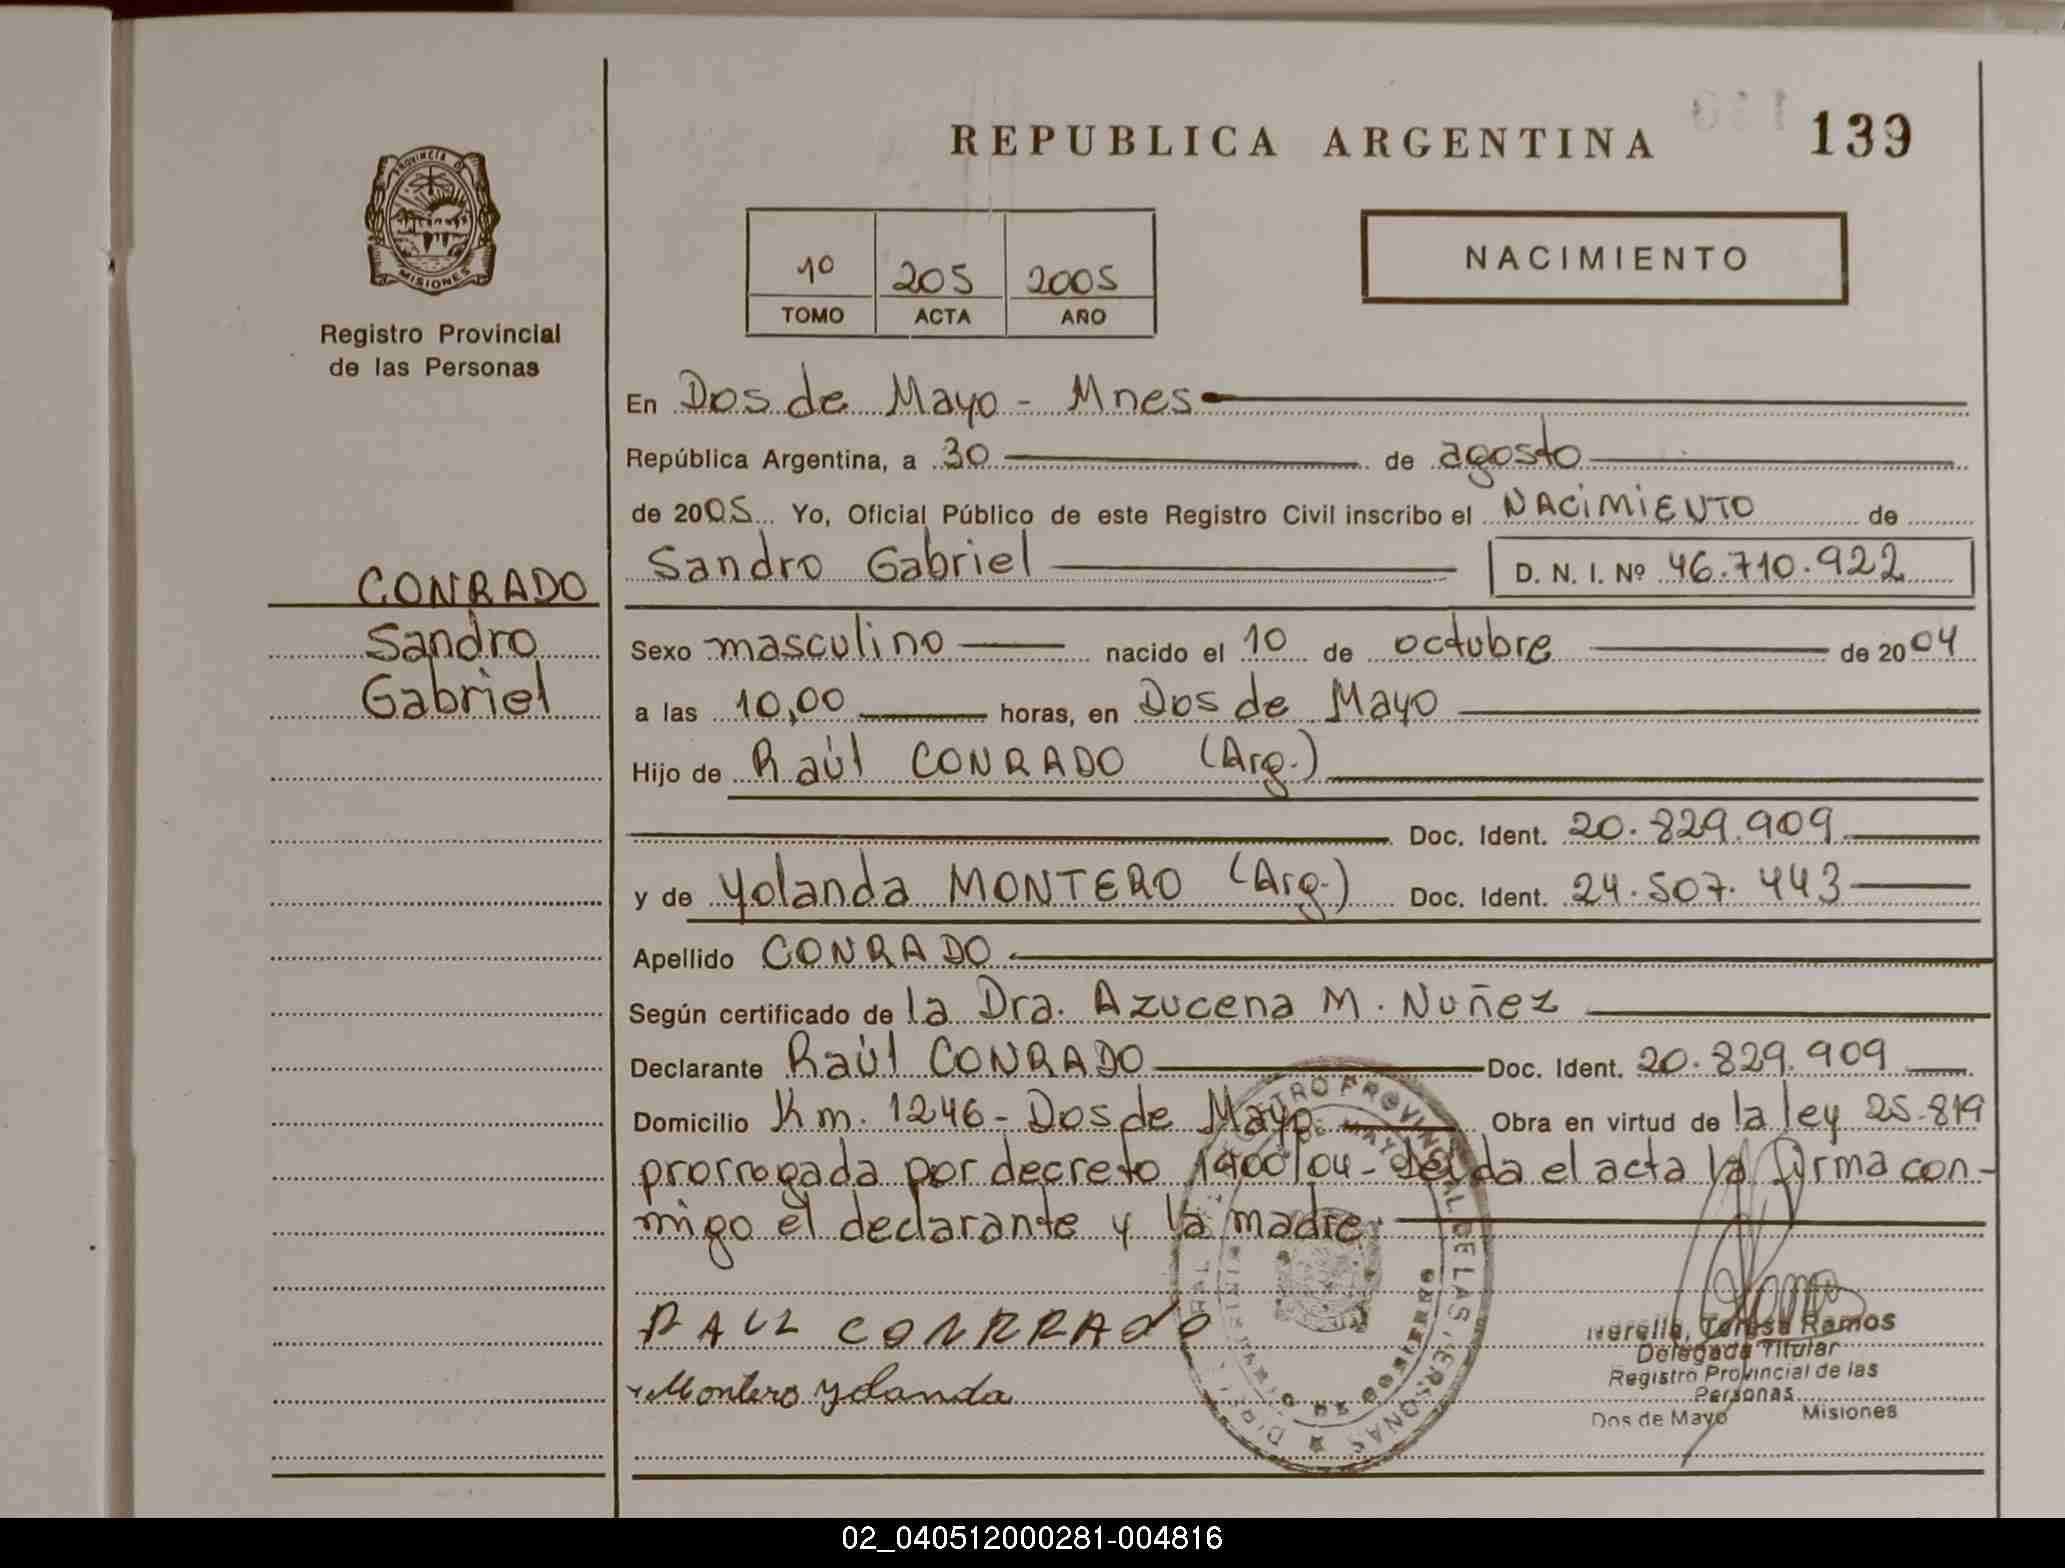 REPUBLICA ARGENTINA 139
PROVINCIA DE
MISIONES
Registro Provincial
de las Personas
1º 205 2005
TOMO ACTA AÑO
NACIMIENTO
En Dos de Mayo - Mnes
República Argentina, a 30 de agosto
de 2005 Yo, Oficial Público de este Registro Civil inscribo el NACIMIENTO de
Sandro Gabriel D. N. I. Nº 46.710.922
CONRADO
Sandro
Gabriel
Sexo masculino nacido el 10 de octubre de 2004
a las 10,00 horas, en Dos de Mayo
Hijo de Raúl CONRADO (Arg.)
Doc. Ident. 20.829.909
y de Yolanda MONTERO (Arg.) Doc. Ident. 24.507.443
Apellido CONRADO
Según certificado de la Dra. Azucena M. Nuñez
Declarante Raúl CONRADO Doc. Ident. 20.829.909
Domicilio Km. 1246 - Dos de Mayo Obra en virtud de la ley 25.819
prorrogada por decreto 1400/04 - Leída el acta la firma con-
migo el declarante y la madre.
RAUL CONRRADO
Montero Yolanda
Teresa Ramos
Delegada Titular
Registro Provincial de las
Personas
Dos de Mayo Misiones
02_040512000281-004816